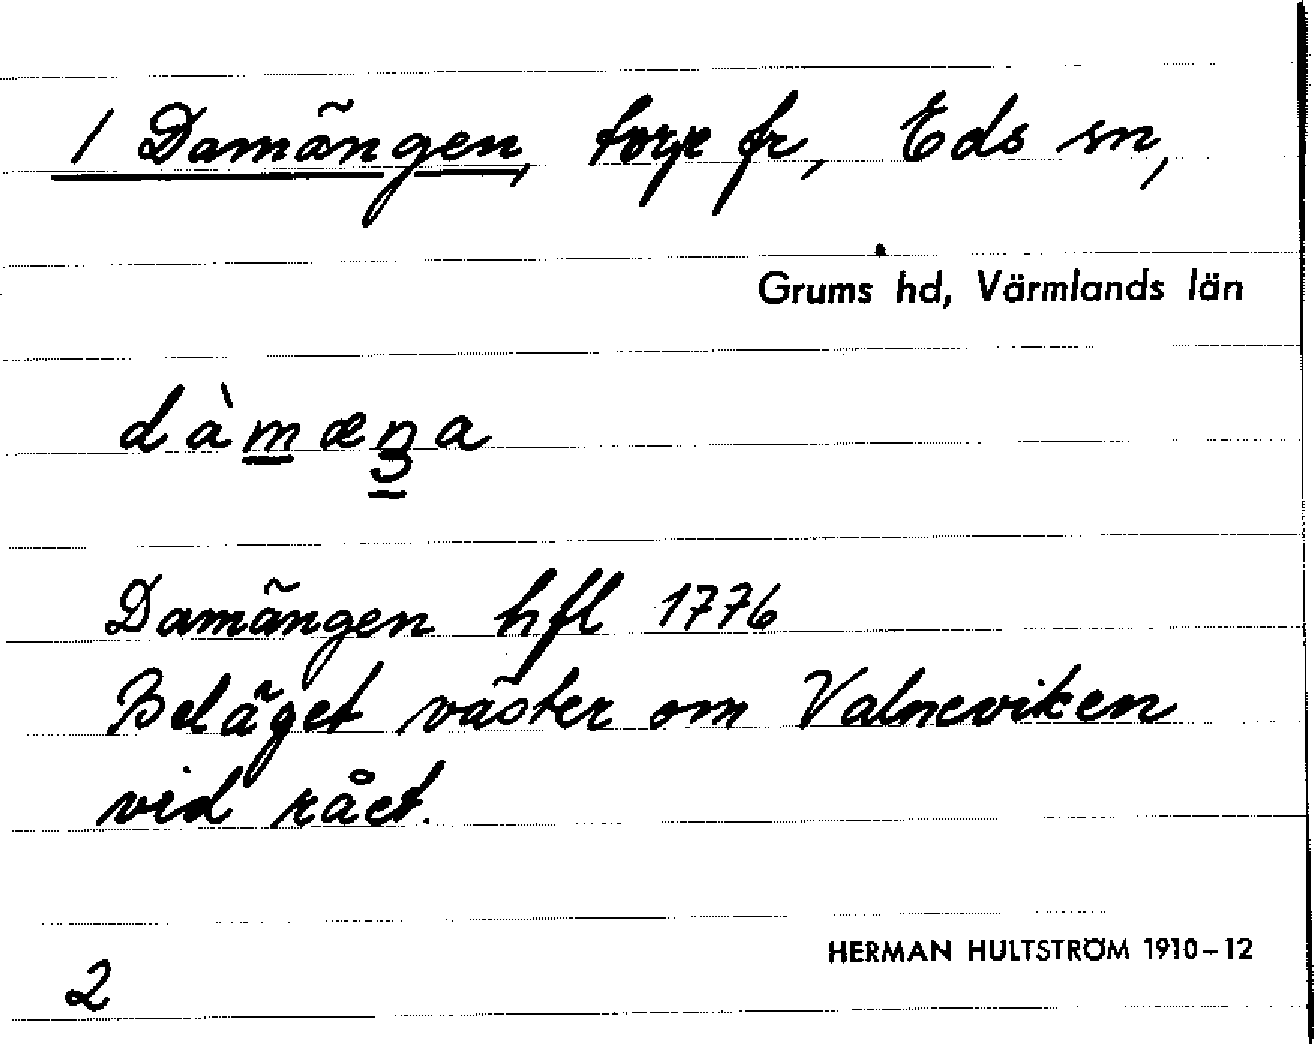 1 Damängen, torp fr, Eds sn,
Grums hd, Värmlands län
dàmæŋa
Damängen hfl 1776
Beläget väster om Valneviken
vid råct.
HERMAN HULTSTRÖM 1910–12
2